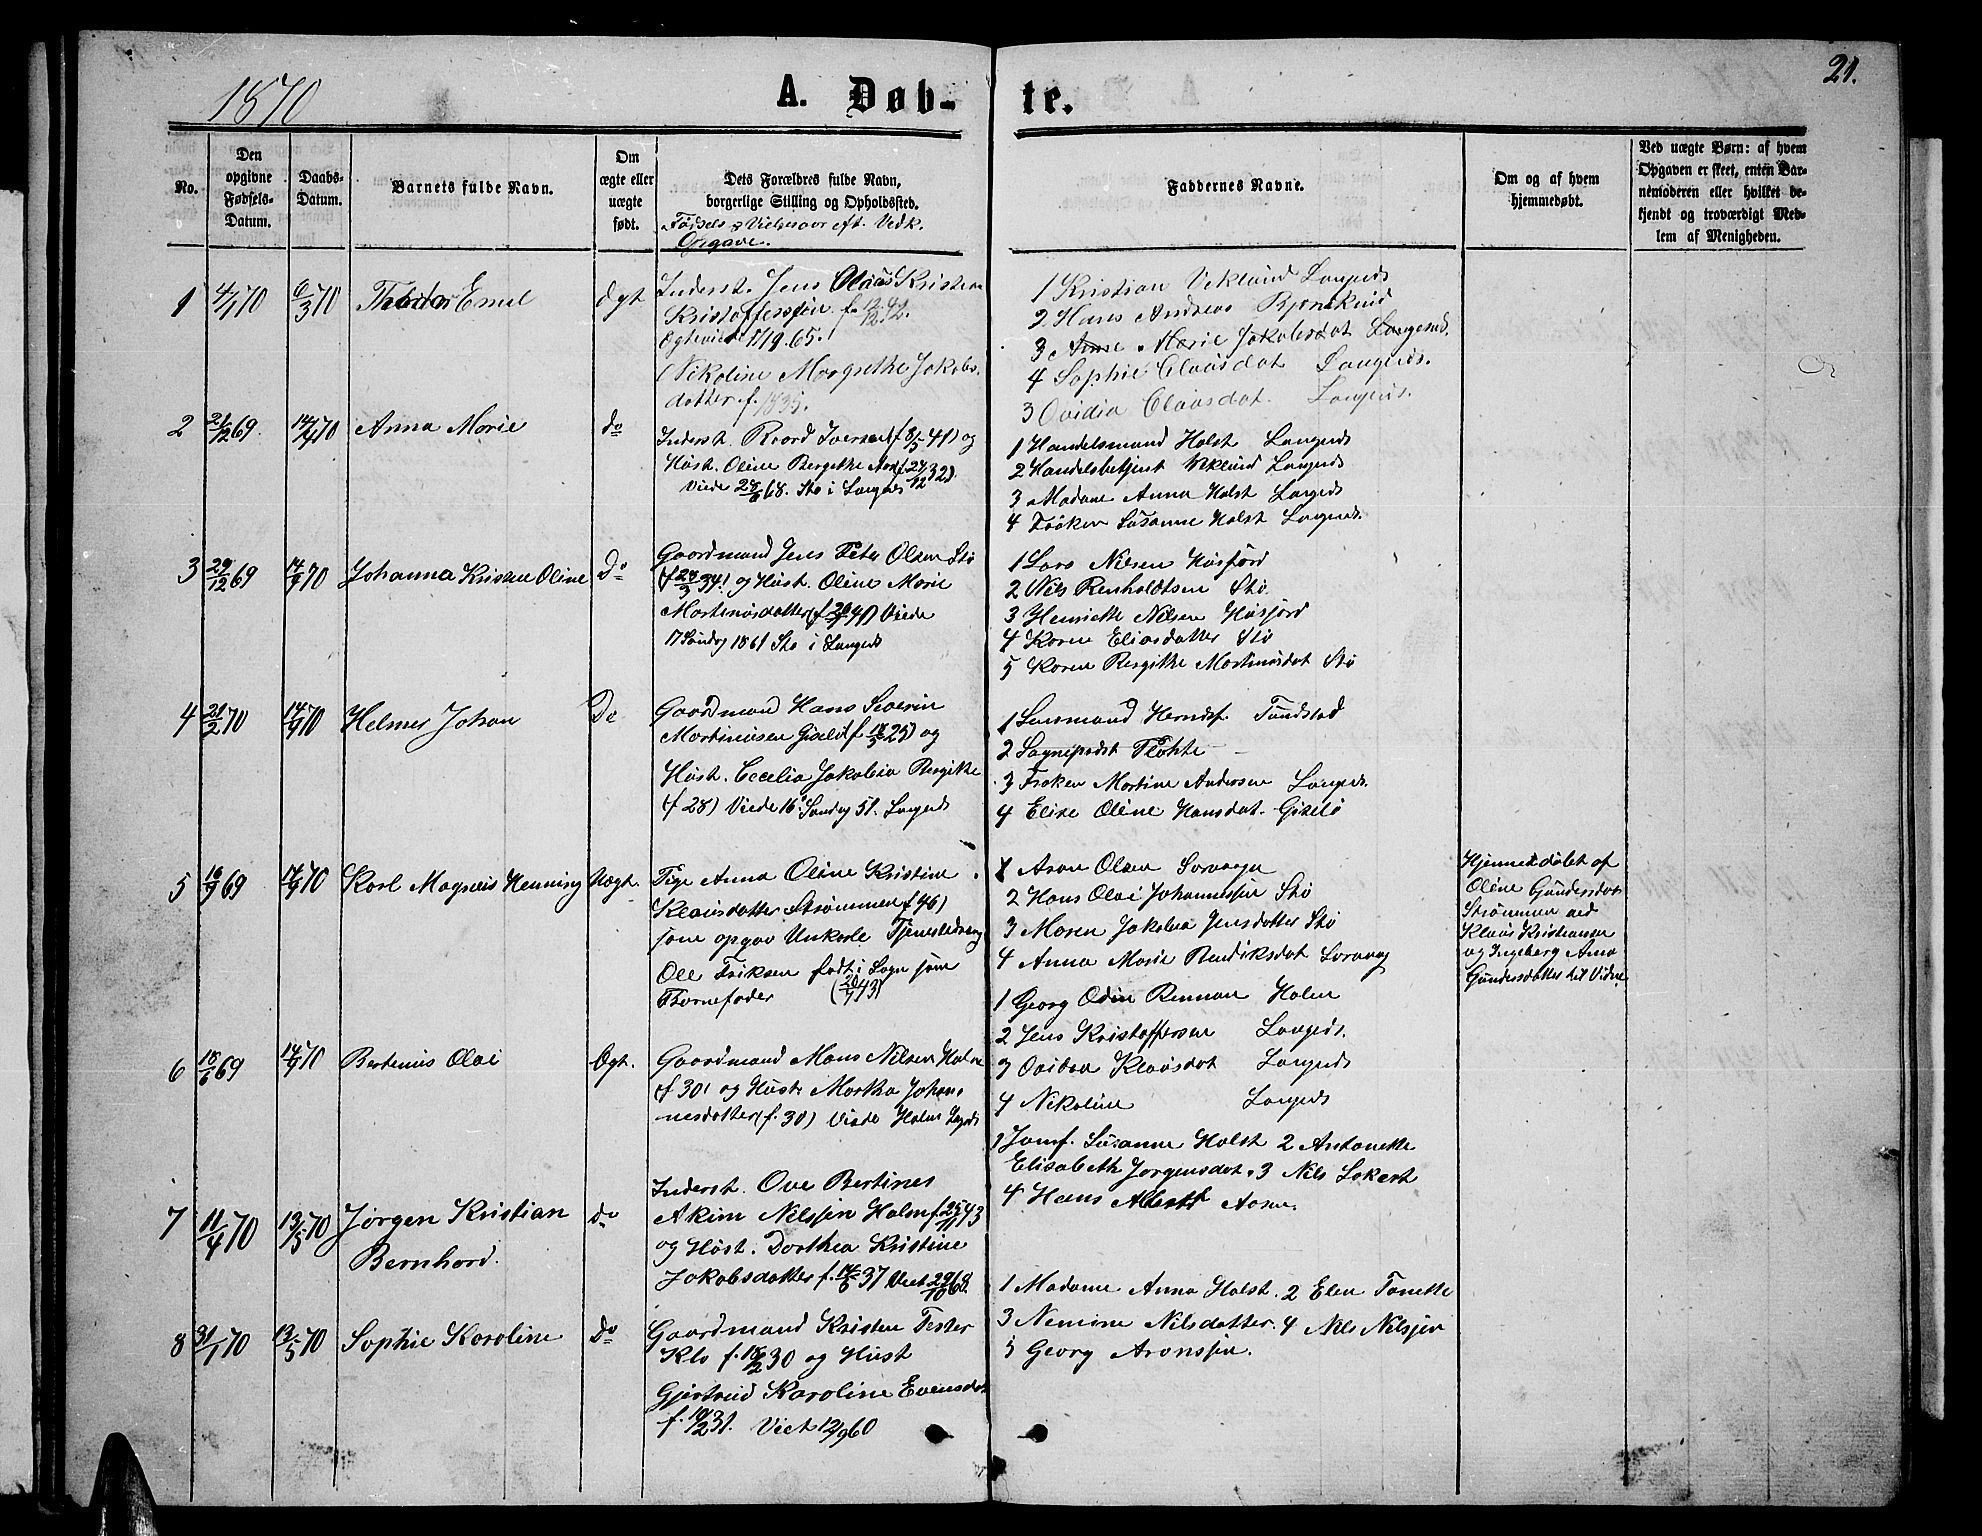 1870
A. Døb-
te.
21.
No.
Den
opgivne
Fødsels-
Datum.
Daabs-
Datum.
Barnets fulde Navn.
Om
ægte eller
uægte
født.
Dets Forældres fulde Navn,
borgerlige Stilling og Opholdssted.
Fødsels & Vielsesaar eft. Vedk.
Opgave.
Faddernes Navne.
Om og af hvem
hjemmedøbt.
Ved uægte Børn: af hvem
Opgaven er skeet, enten Bar-
nemoderen eller hvilket be-
kjendt og troværdigt Med-
lem af Menigheden.
1 4/1 70 6/3 70 Emil Ægt
Inderst. Jens Olaus Kristian
Kristoffersen f. 12/12 42.
Ægteviet 65.
Nikoline Margrethe Jakobs-
datter f. 1835.
1 Kristian Veklund Langnds
2 Hans Andreas
3 Anne Marie Jakobsdat Langends.
4 Sophie Claasdat Langnds.
3 Ovidia Claasdat. Langnds.
2 21/12 69. 14/4 70 Anna Marie do
Inderst. Iversen (f 8/5 41) og
Hust. Oline Bergitte
Viede 28/6 68. Stø i Langnds
1 Handelsmand Holst Langnds
2 Handelsbetjent Veklund Langnds
3 Madame Anna Holst Langnds
4 Frøken Susanne Holst Langnds.
3 29/12 69 14/4 70 Johanna Kristen Oline Do
Gaardmand Jens Peter Olsen Stø
(f 34) og Hust. Oline Marie
Martinusdatter (f 41) Viede
17 Søndag 1861 Stø i Langnds
1 Lars Nilsen Husfjord
2 Nils Renholdtsen Stø.
3 Henriette Nilsen Husfjord
4 Karen Eliasdatter Stø
5 Karen Bergitte Martinusdat Stø
4 21/2 70 14/4 70 Helmer Johan Do
Gaardmand Hans Severin
Martinusen Gisslø (f 25) og
Hust. Cecelia Jakobia Bergitte
(f 28) Viede 16 Søndag 51. Langnds
1 Lensmand Herndf. Tundstad
2 Flohte
3 Frøken Martine Andersen Langnds.
4 Elise Oline Hansdat. Gisslø
5 16/9 69 14/4 70 Karl Magnus Henning Uægt.
Pige Anna Oline Kristine
Klausdatter Strømmen f 46)
som opgav Ungkarle
Ole Eriksen født i Sogn som
Barnefader (20/7 43)
1 Aron Olsen Sorvaag
2 Hans Olai Johannessen Stø
3 Maren Jakobia Jensdatter Stø
4 Anna Marie Bendiksdat Sorvaag
Hjemmedøbt af
Oline Gundersdat
Strømmen med
Klaus Kristiansen
og Ingeborg Anna
Gundersdatter til Vidne
6 18/6 69 14/4 70 Bertinus Olai Ægt.
Gaardmand Mons Nilsen Holm
(f 30) og Hust. Martha Johan-
nesdatter (f. 30) Viede Holm Langnds
1 Georg Odin Renman Holm
2 Jens Kristoffersen Langnds.
3 Ovidia Klausdat Langnds
4 Nikoline Langnds
7 11/4 70 13/5 70 Jørgen Kristian
Bernhard. do
Inderst. Ove Bertines
Akim Nilssen Holm f. 25/11 43
og Hust. Dorthea Kristine
Jakobsdatter f. 14/6 37 Viet 29/10 68.
1 Jomf. Susanne Holst 2 Antonette
Elisabeth Jørgensdat. 3 Nils Lokert
4 Hans Albert
8 31/1 70 13/5 70 Sophie Karoline Do
Gaardmand Kristen Pester
Klo f. 18/2 30 og Hust
Gjertrud Karoline Evensdat
f. 10/2 31. Viet 12/9 60
1 Madame Anna Holst. 2 Elen Tonette
3 Nemine Nilsdatter. 4 Nils Nilsen
5 Georg Aronsen.